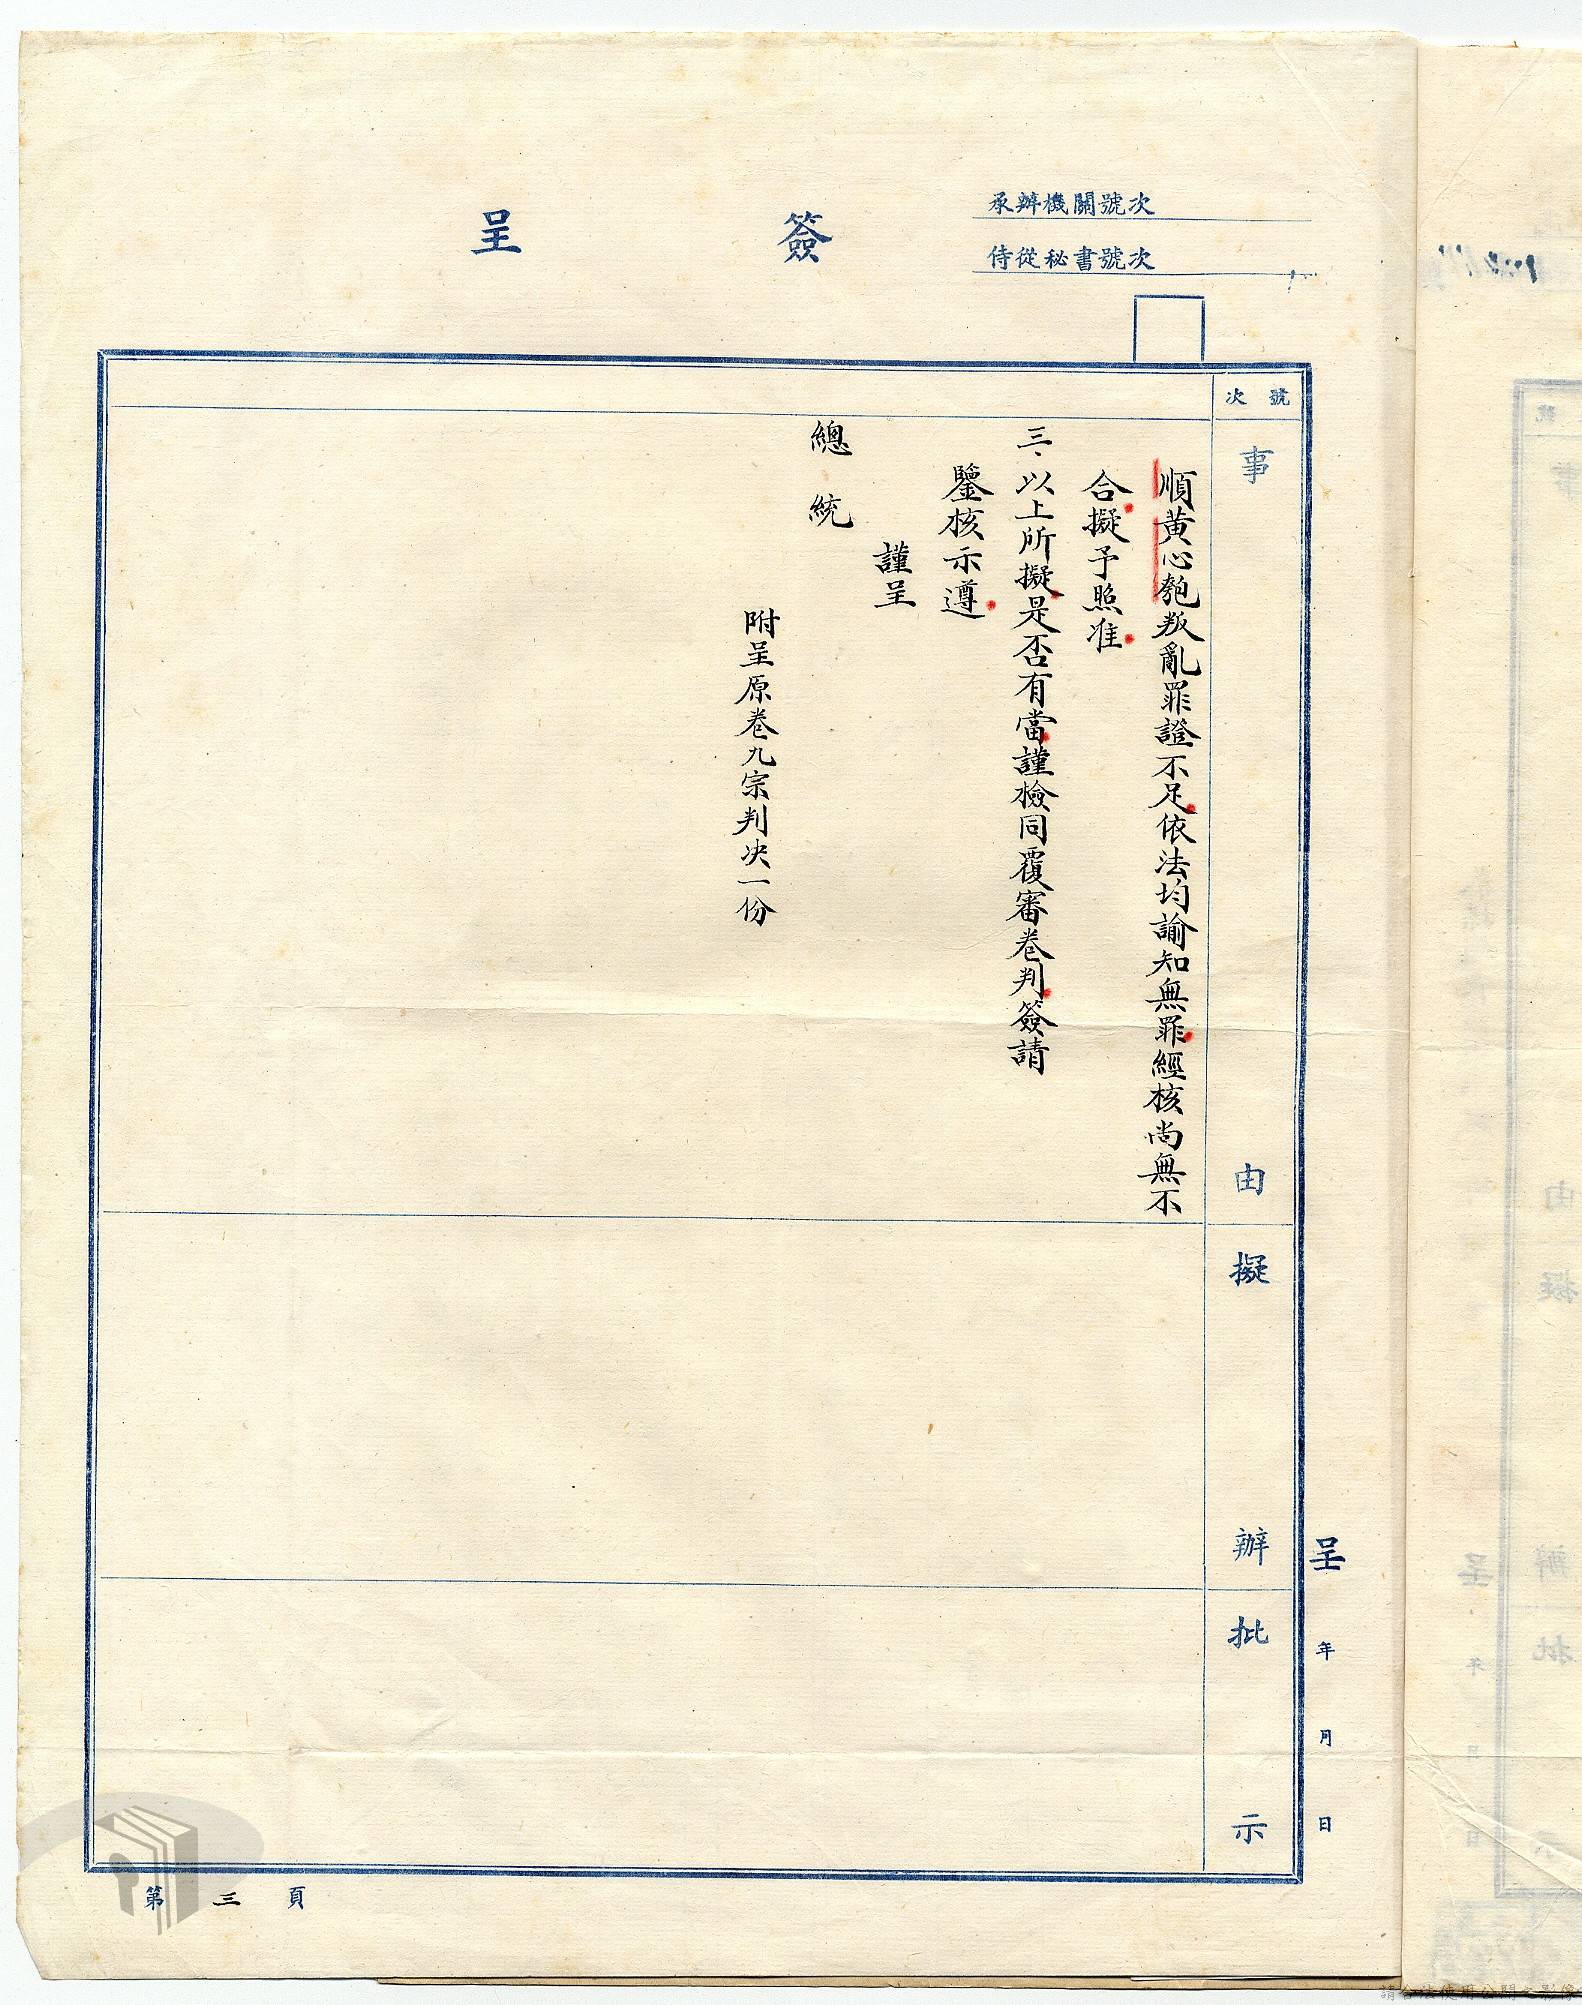 簽呈
承辦機關號次
侍從秘書號次
號次
事由
擬辦
批示
順黄心匏叛亂罪證不足依法均諭知無罪經核尚無不
合擬予照准
三、以上所擬是否有當謹檢同覆審卷判簽請
鑒核示遵
謹呈
總統
附呈原卷九宗判决一份
呈 年 月 日
第三頁